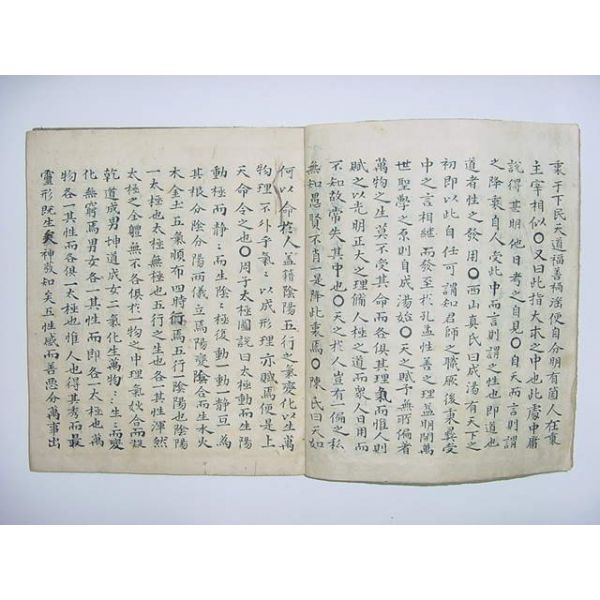 衷于下民天道福善禍滛便自分明有箇人在裏
主宰相似〇又曰此指大本之中也此處中庸
說得甚明他日考之自見〇自天而言則謂
之降衷自人受此中而言則謂之性也即道也
道者性之發用〇西山真氏曰成湯有天下之
初即以此自任可謂知君師之職厥後秉彛受
中之言相継而發至於孔孟性善之理益明開萬
世聖學之原則自成湯始〇天之賦予無所偏者
萬物之生莫不受其命而各俱其理氣而惟人則
賦之以光明正大之理備人極之道而衆人日用而
不知故常失其中也〇天之於人豈有一偏之私
無知愚賢不肖一是降此衷焉〇陳氏曰天如
何以命於人盖籍陰陽五行之氣變化以生萬
物理不外乎氣〻以成形理亦賦焉便是上
天命令之也〇周子太極圖說曰太極動而生陽
動極而静〻而生陰〻極復動一動静互爲
其根分陰分陽而儀立焉陽變陰合而生水火
木金土五氣順布四時行焉五行陰陽也陰陽
一太極也太極無極也五行之生也各一其性渾然
太極之全軆無不各俱於一物之中理氣妙合而凝
乾道成男坤道成女二氣化生萬物〻生〻而變
化無窮焉男女各一其性而即各一太極也萬
物各一其性而各俱一太極也惟人也得其秀而最
靈形既生矣神發知矣五性感而善悪分萬事出